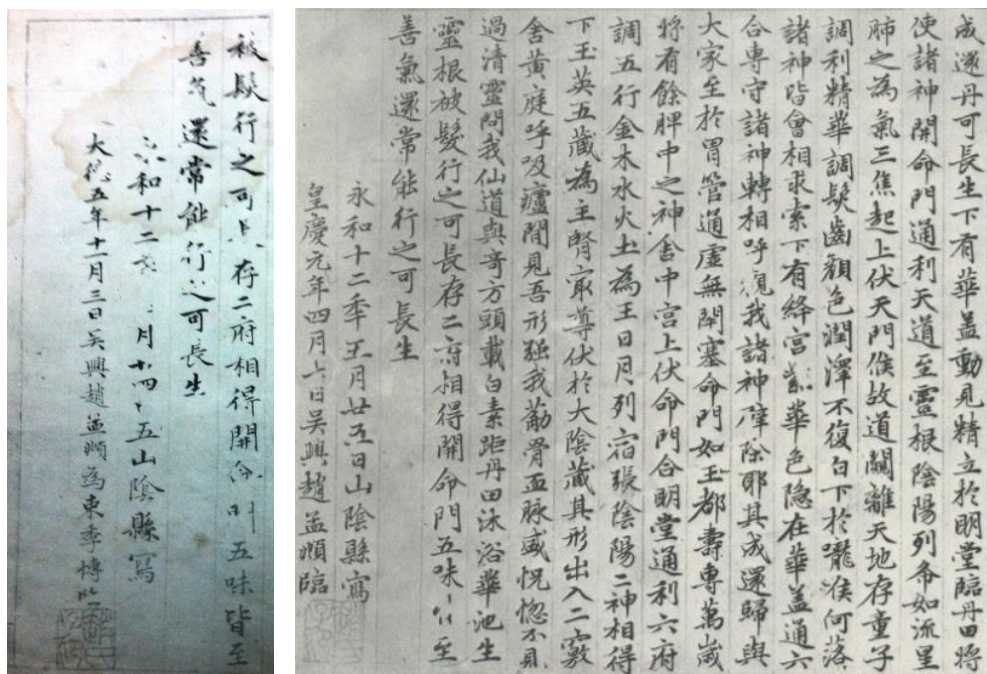 被髮行之可長存二府相得開命門五味皆至
善氣還常能行之可長生
永和十二年 月 山陰縣寫
大德五年十一月三日吳興趙孟頫為東季博臨
成還丹可長生下有華蓋動見精立於明堂臨丹田將
使諸神開命門通利天道至靈根陰陽列布如流星
肺之為氣三焦起上伏天門候故道闚離天地存童子
調利精華調髮齒顏色潤澤不復白下於嚨喉何落落
諸神皆會相求索下有絳宮紫華色隱在華蓋通六
合專守諸神轉相呼觀我諸神辟除耶其成還歸與
大家至於胃管通虛無閉塞命門如玉都壽專萬歲
將有餘脾中之神舍中宮上伏命門合明堂通利六府
調五行金木水火土為王日月列宿張陰陽二神相得
下玉英五藏為主腎最尊伏於大陰藏其形出入二竅
舍黃庭呼吸廬間見吾形强我筋骨血脉盛怳惚不見
過清靈問我仙道與奇方頭載白素距丹田沐浴華池生
靈根被髮行之可長存二府相得開命門五味皆至
善氣還常能行之可長生
永和十二年五月廿五日山陰縣寫
皇慶元年四月六日吳興趙孟頫臨